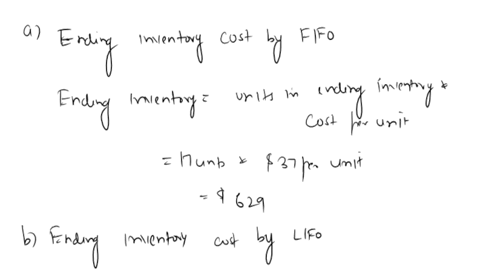 a) Ending inventory cost by FIFO
Ending inventory = units in ending inventory *
cost per unit
= 17 units * $37 per unit
= $629
b) Ending inventory cost by LIFO